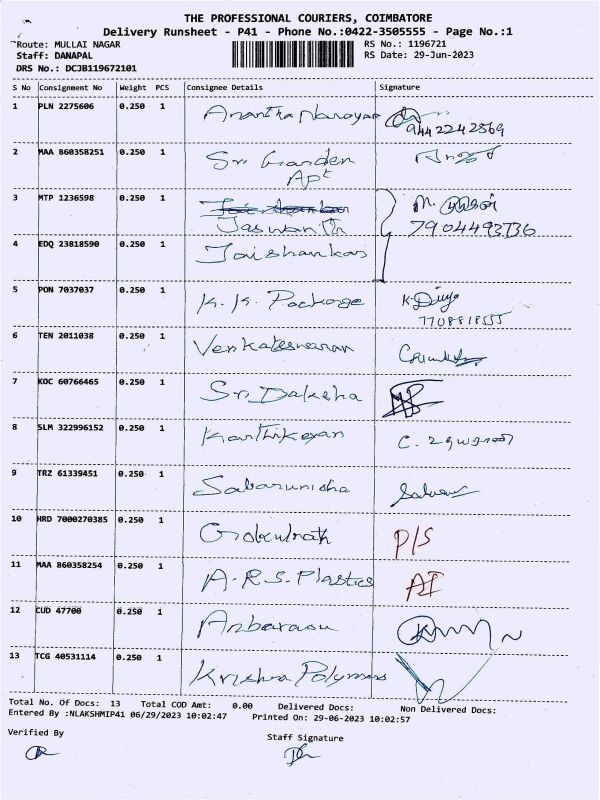 THE PROFESSIONAL COURIERS, COIMBATORE
Delivery Runsheet - P41 - Phone No.:0422-3505555 - Page No.:1
Route: MULLAI NAGAR RS No.: 1196721
Staff: DANAPAL RS Date: 29-Jun-2023
DRS No.: DCJB119672101
S No Consignment No Weight PCS Consignee Details Signature
1 PLN 2275606 0.250 1 Anantha Narayan
9442242569
2 MAA 860358251 0.250 1 Sri Garden
Apt
3 MTP 1236598 0.250 1 Jaishankar M.
Jaswanth 7904493736
4 EDQ 23818590 0.250 1 Jaishankar
5 PON 7037037 0.250 1 K.K. Package K. Divya
7708818555
6 TEN 2011038 0.250 1 Venkateswaran
7 KOC 60766465 0.250 1 Sri Daksha
8 SLM 322996152 0.250 1 Karthikeyan C. உதயராணி
9 TRZ 61339451 0.250 1 Sabarunisha
10 HRD 7000270385 0.250 1 Gokulnath P/S
11 MAA 860358254 0.250 1 A.R.S. Plastics AI
12 CUD 47700 0.250 1 Anbarasu
13 TCG 40531114 0.250 1 Krishna Polymers
Total No. Of Docs: 13 Total COD Amt: 0.00 Delivered Docs: Non Delivered Docs:
Entered By :NLAKSHMIP41 06/29/2023 10:02:47 Printed On: 29-06-2023 10:02:57
Verified By Staff Signature